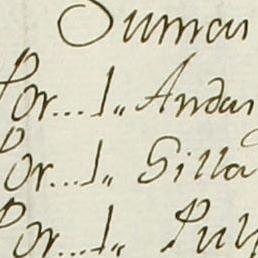 Suman
Por...1,, Andas
Por...1,, Silla
Por...1,,